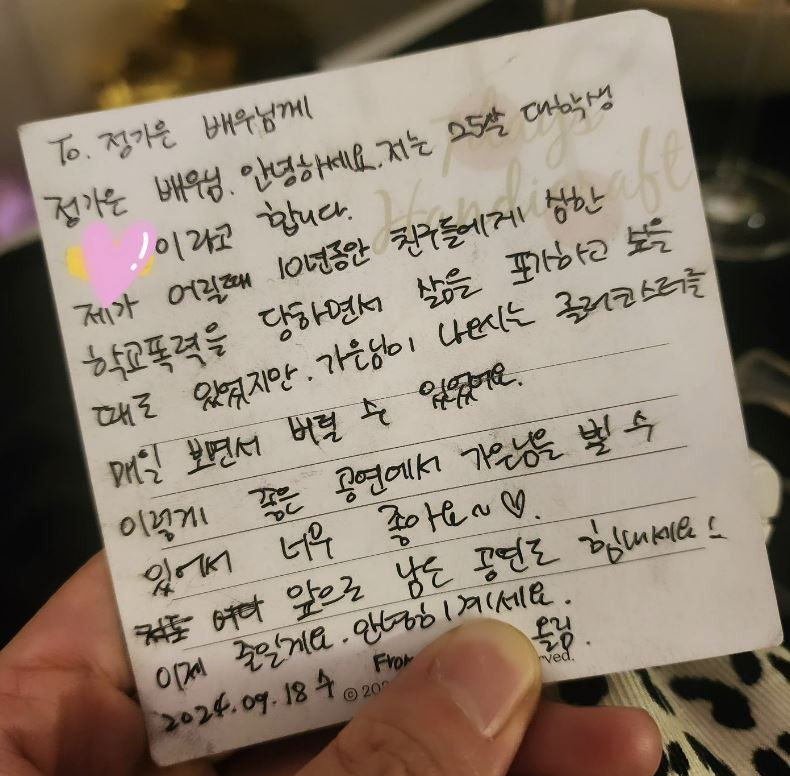 To. 정가은 배우님께
정가은 배우님. 안녕하세요. 저는 25살 대학생
이라고 합니다.
제가 어릴때 10년동안 친구들에게 심한
학교폭력을 당하면서 삶을 포기하고 싶을
때도 있었지만. 가은님이 나오시는 롤러코스터를
매일 보면서 버틸 수 있었어요.
이렇게 좋은 공연에서 가은님을 뵐 수
있어서 너무 좋아요~♡.
앞으로 남은 공연도 힘내세요
이제 줄일게요. 안녕히계세요.
2024.09.18 수 From 올림.
7days
Handicraft
© 202 rved.